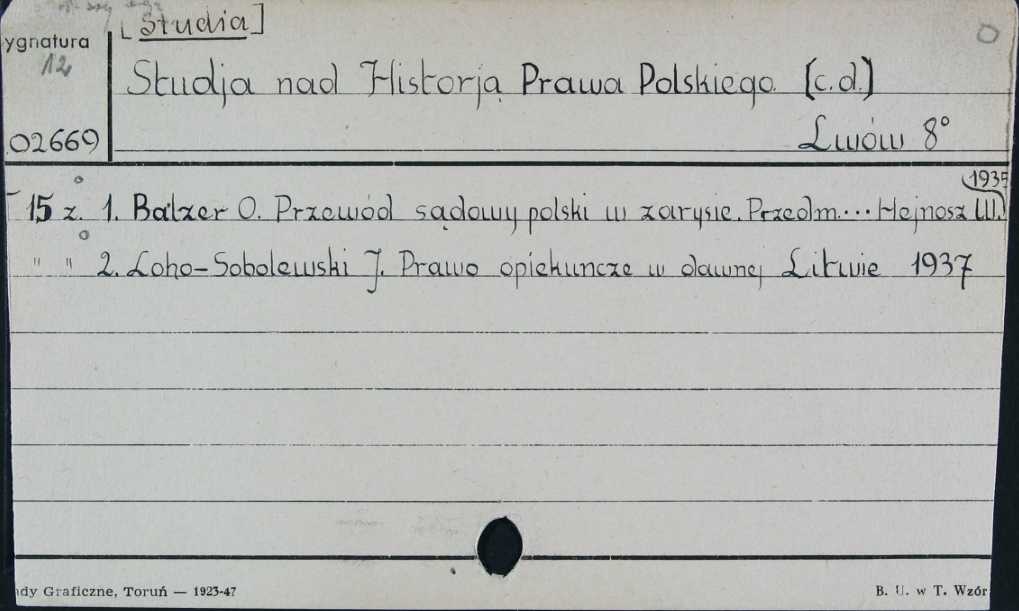 [Studia]
ygnatura
12
Studja nad Historją Prawa Polskiego (c.d.)
02669
Lwów 8°
1935
15 z. 1. Balzer O. Przewód sądowy polski w zarysie. Przedm.... Hejnosz W.
" " 2. Loho-Sobolewski J. Prawo opiekuncze w dawnej Litwie 1937
dy Graficzne, Toruń — 1923-47
B. U. w T. Wzór